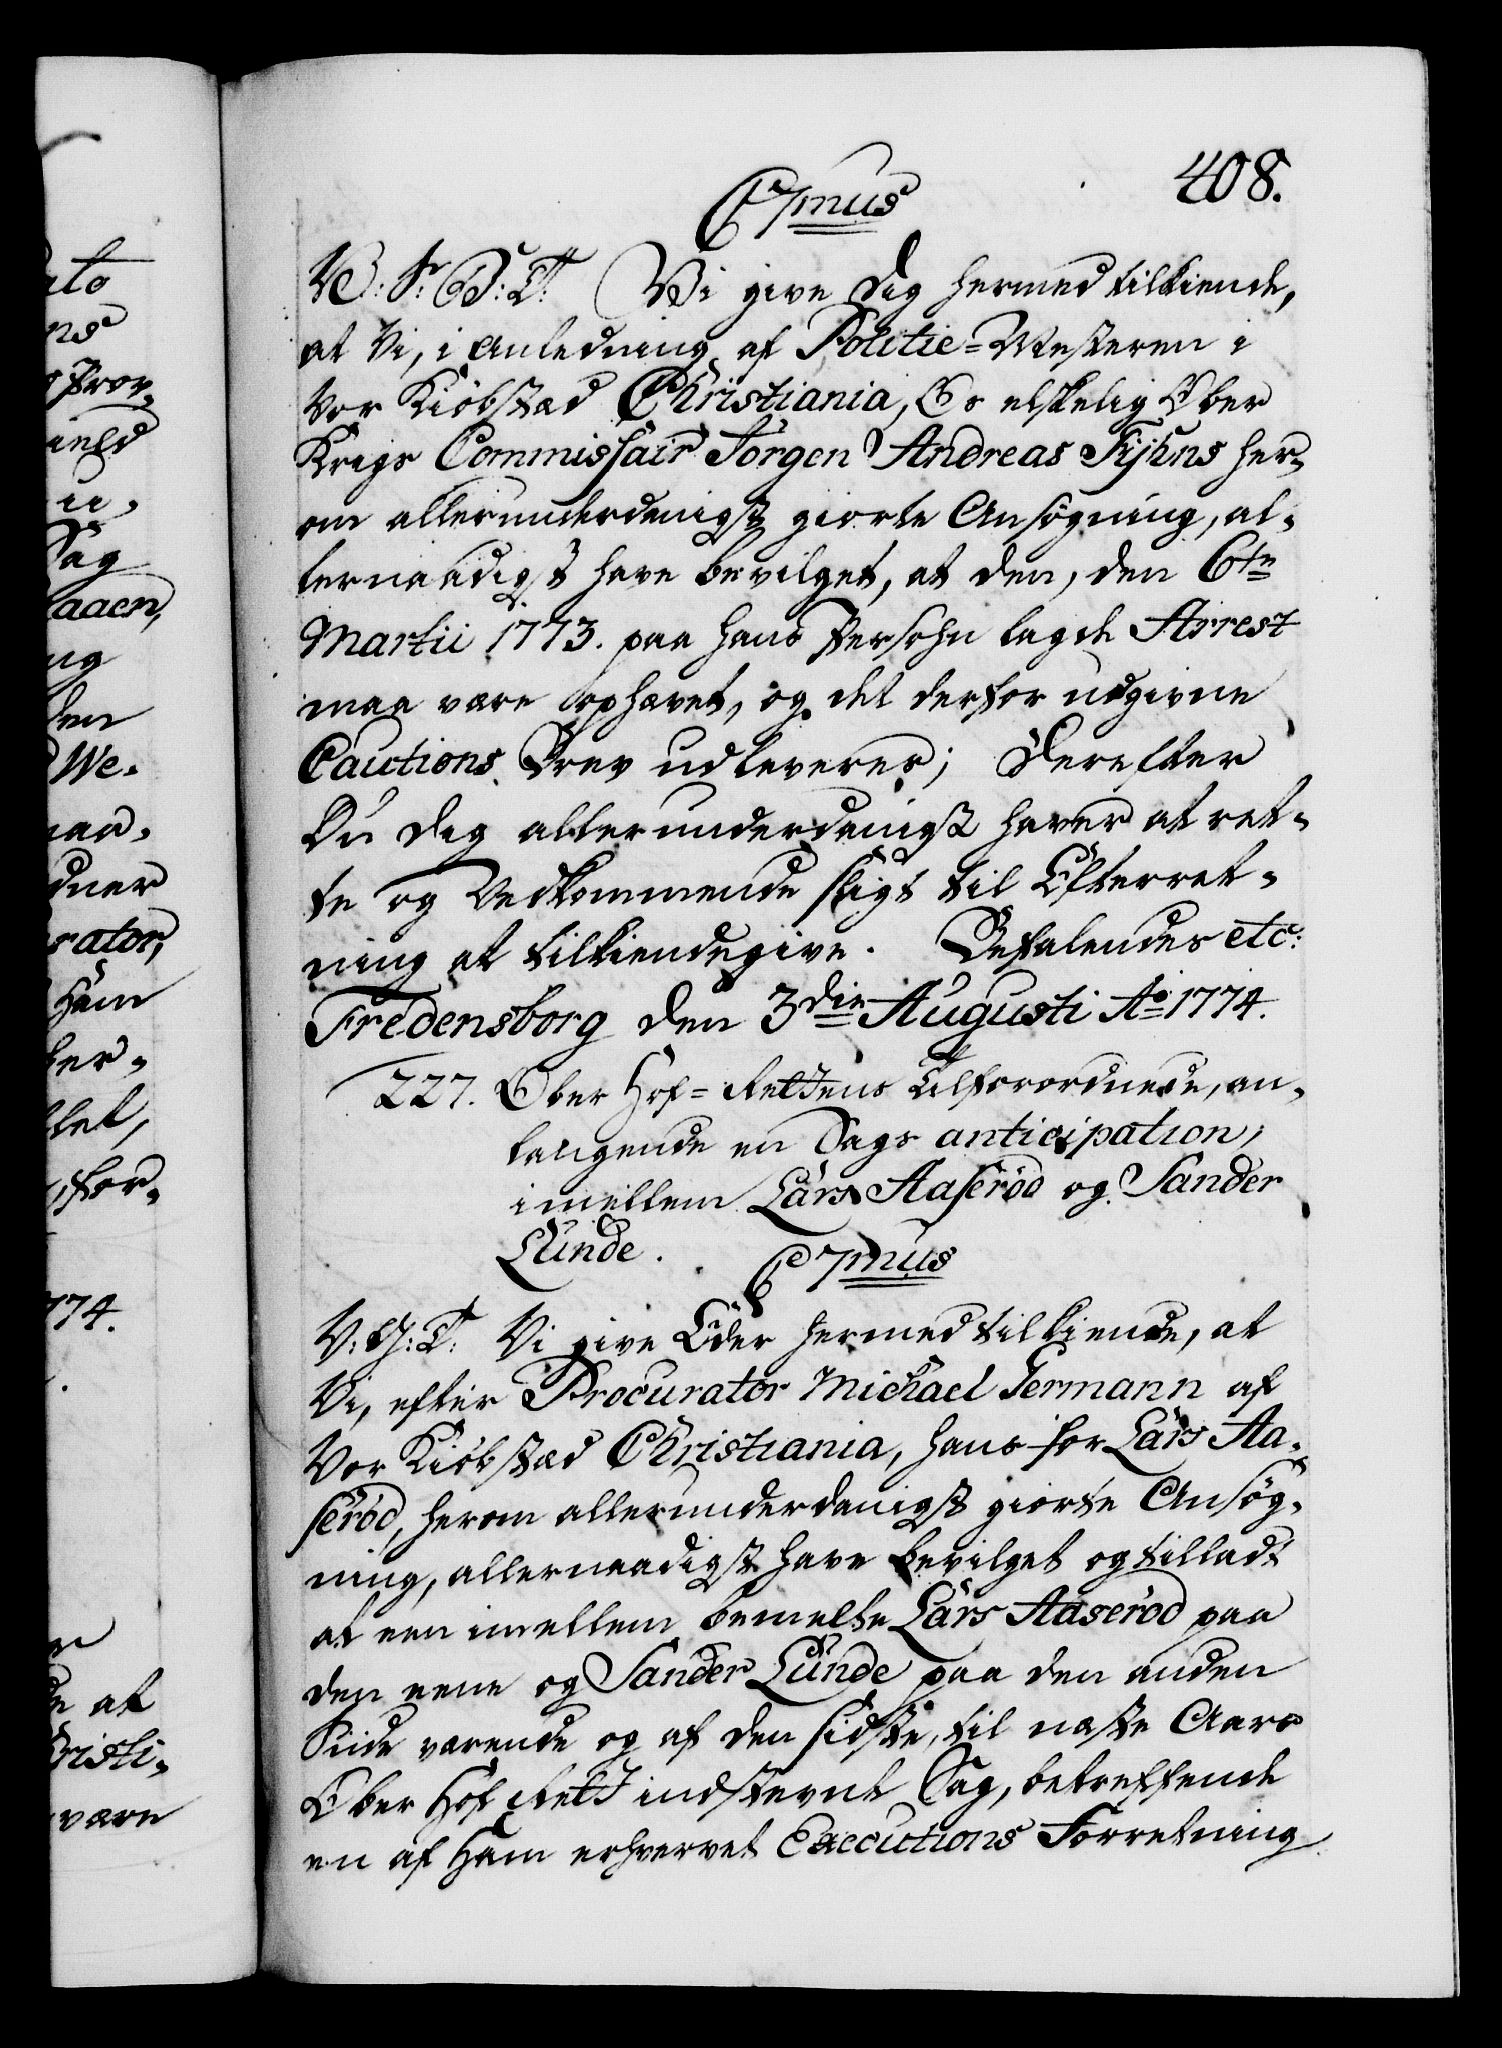 408.
C7mus
V: S: G: T: Vi give dig hermed tilkiende,
at Vi, i Anledning af Politie-Mesteren i
Vor Kiöbstæd Christiania, Os elskelig Ober
Krigs Commissair Jörgen Andreas her-
om allerunderdanigst giorte Ansögning, al-
lernaadigst have bevilget, at den, den 6te
Martii 1773. paa hans Persohn lagde Arrest
maa være ophævet, og det derfor udgivne
Cautions Brev udleveres; Derefter
Du dig allerunderdanigst haver at ret-
te og Vedkommende sligt til Efterret-
ning at tilkiendegive. Befalendes etc:
Fredensborg den 3die Augusti Ao 1774.
227. Ober Hof-Rettens Tilforordnede, an-
langende en Sags anticipation,
imellem Lars Aaseröd og Sander
Lunde. C7mus
V: G: T: Vi give Eder hermed tilkiende, at
Vi, efter Procurator Michael Termann af
Vor Kiöbstæd Christiania, hans for Lars Aa-
seröd, herom allerunderdanigst giorte Ansög-
ning, allernaadigst have bevilget og tilladt
at een imellem bemelte Lars Aaseröd paa
den eene og Sander Lunde paa den anden
Siide værende og af den sidste, til næste Aars
Ober Hof Rett indstevnt Sag, betreffende
en af Ham erhvervet Executions Forretning